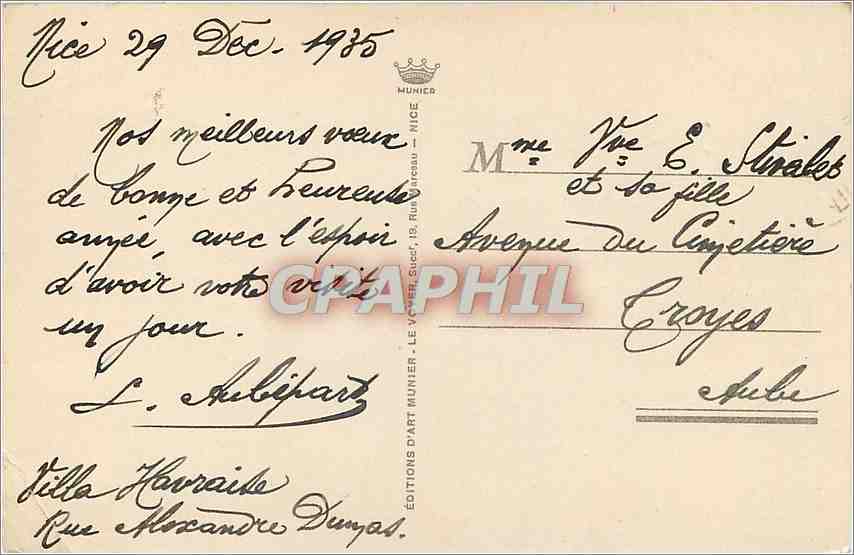 Nice 29 Déc. 1935
Nos meilleurs vœux
de bonne et heureuse
année, avec l'espoir
d'avoir votre visite
un jour.
L. Aubépart
Villa Havraise
Rue Alexandre Dumas.
MUNIER
ÉDITIONS D'ART MUNIER - LE VOYER, Succr, 19, Rue Marceau - NICE
CPAPHIL
Mme Vve E. Stivalet
et sa fille
Avenue du Cimetière
Troyes
Aube